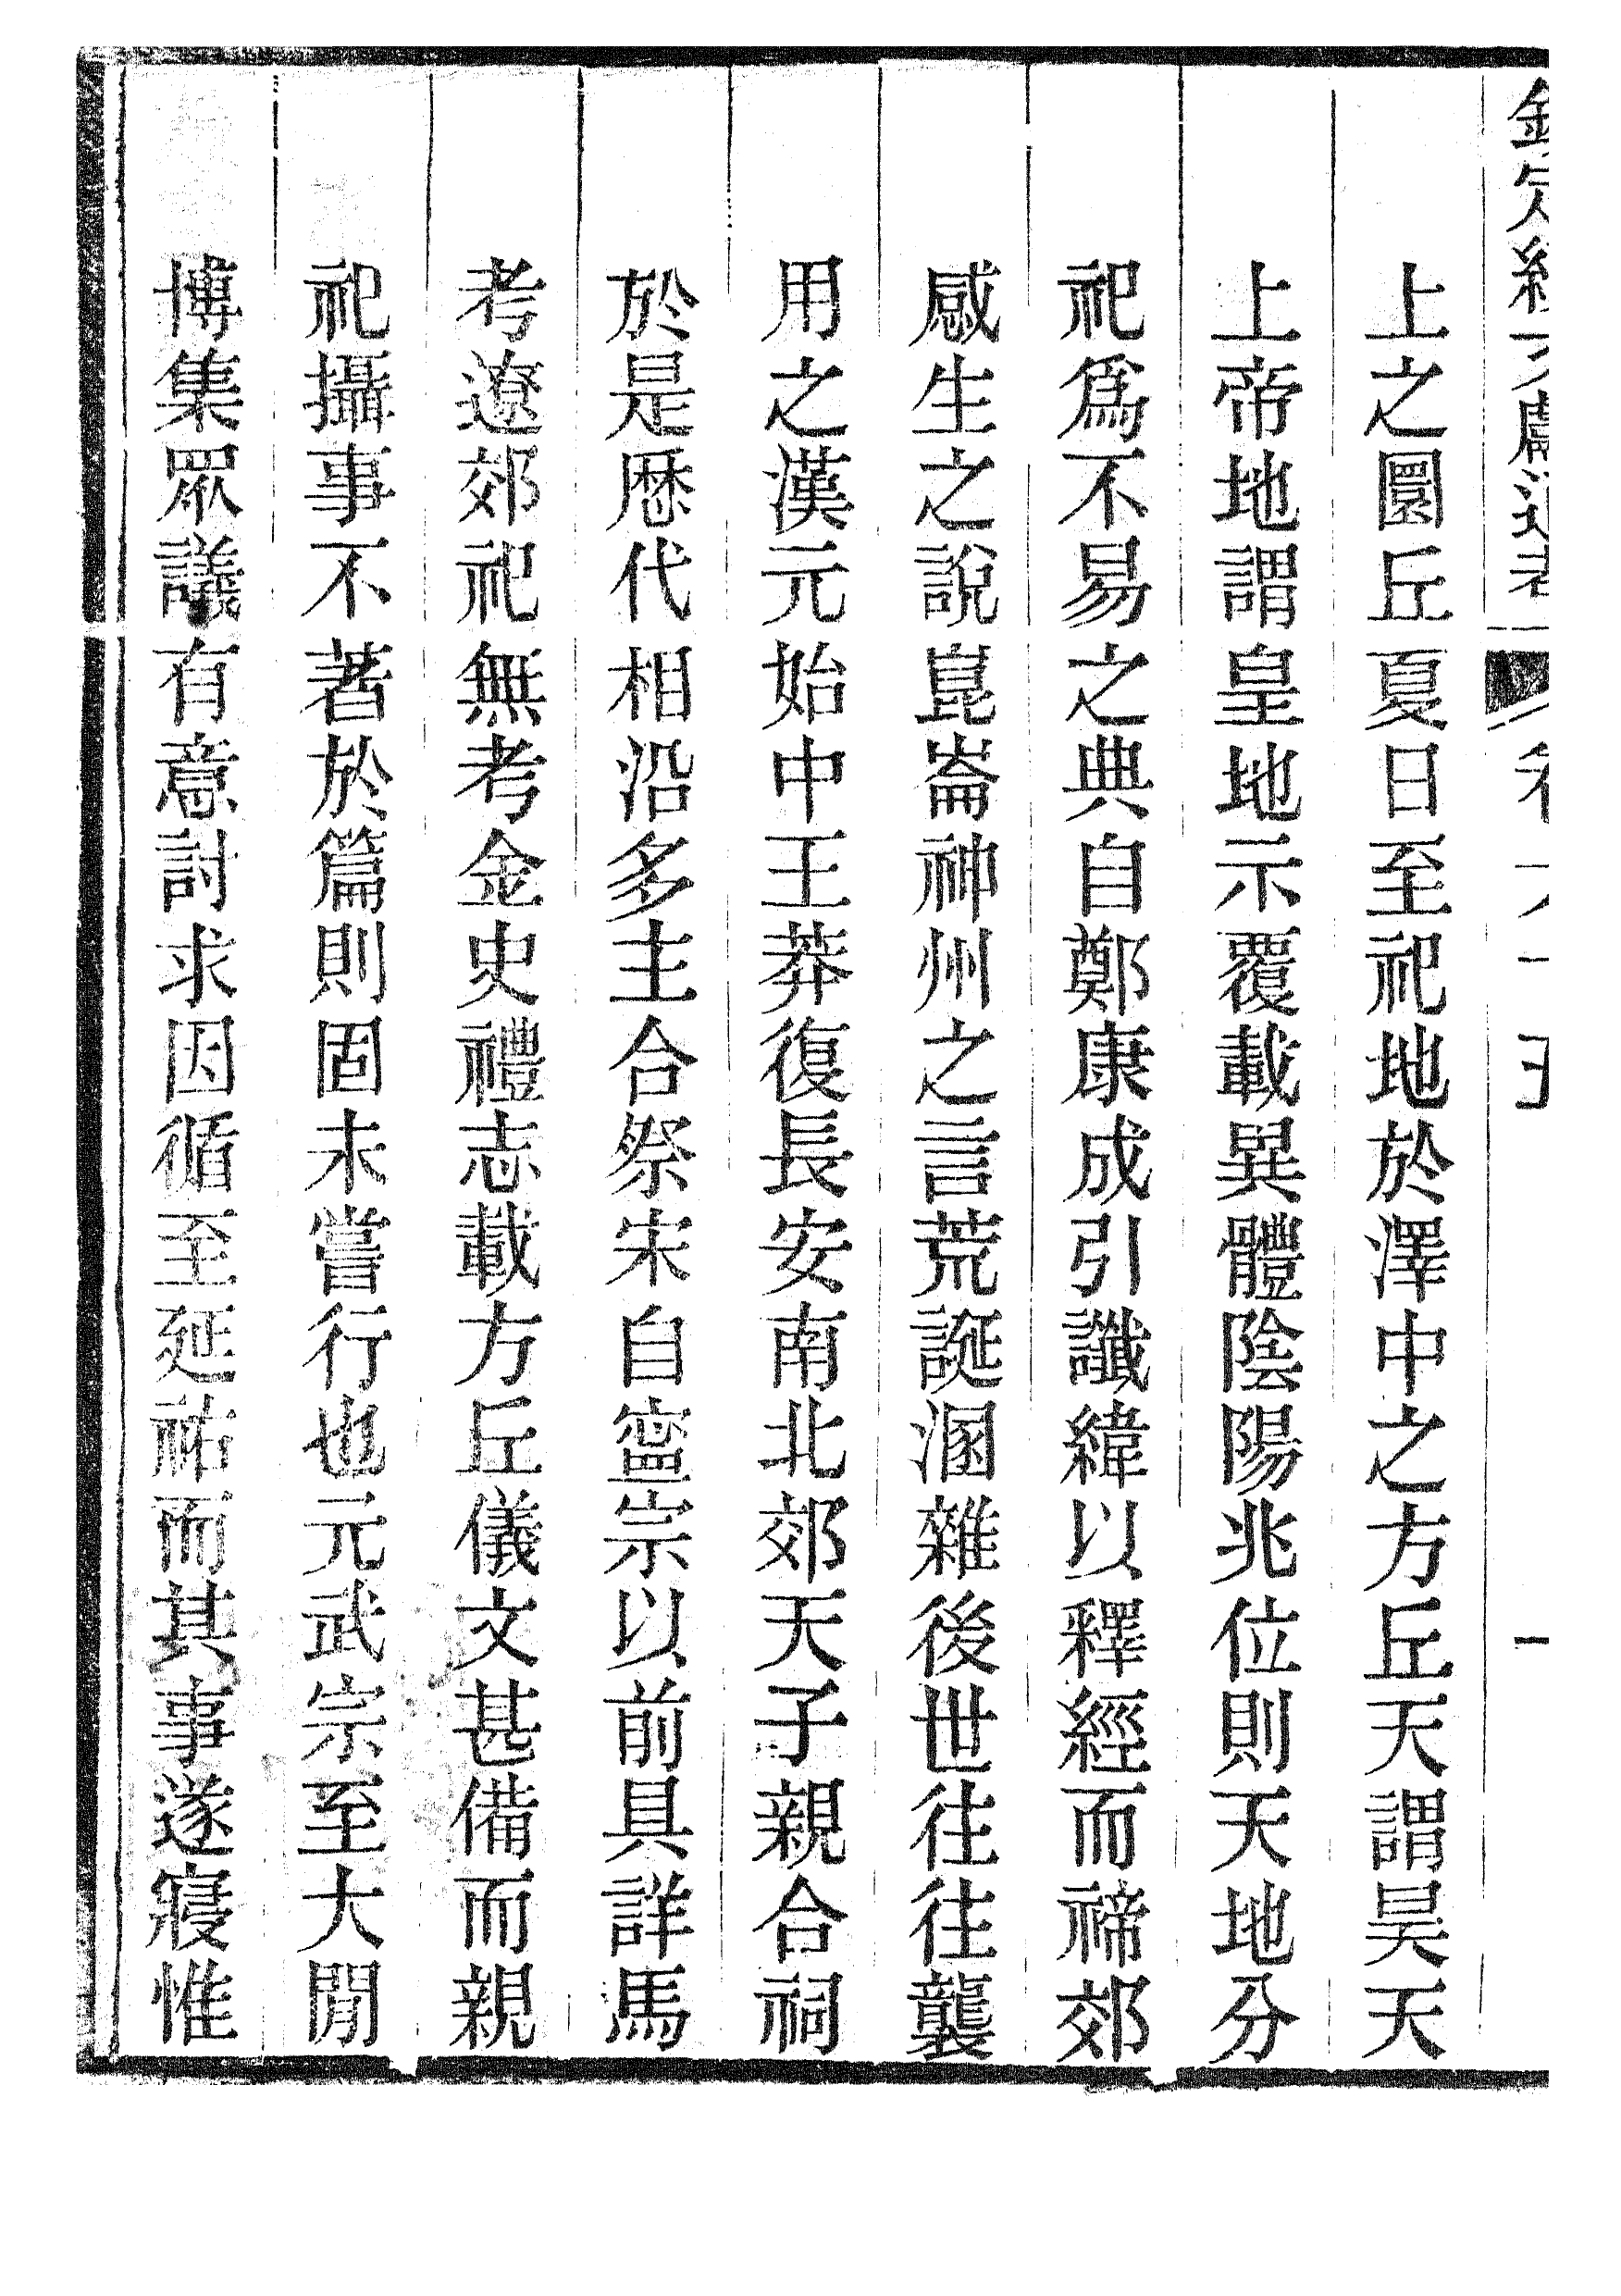 上之圜丘夏日至祀地於澤中之方丘天謂昊天
上帝地謂皇地示覆載異體陰陽兆位則天地分
祀爲不易之典自鄭康成引讖緯以釋經而禘郊
感生之說崑崙神州之言荒誕溷雜後世往往襲
用之漢元始中王莽復長安南北郊天子親合祠
於是歴代相沿多主合祭宋自寧宗以前具詳馬
考遼郊祀無考金史禮志載方丘儀文甚備而親
祀攝事不著於篇則固未嘗行也元武宗至大閒
博集眾議有意討求因循至延祐而其事遂寢惟